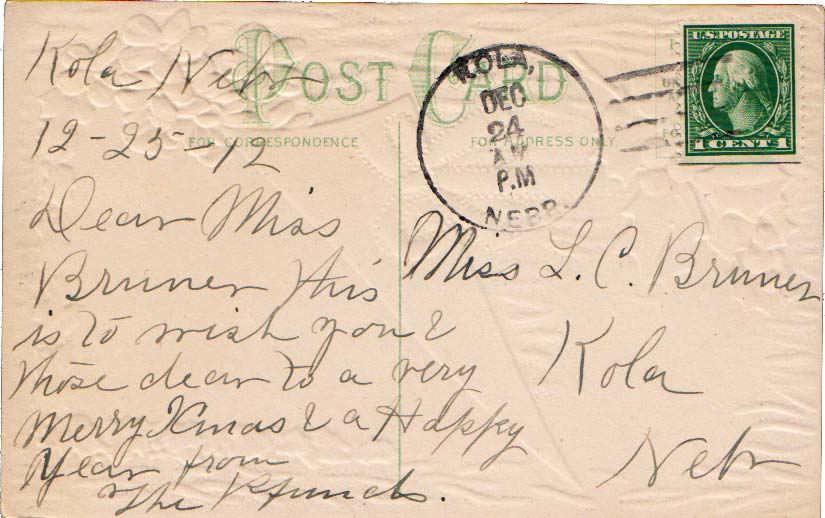 POST CARD
FOR CORRESPONDENCE
FOR ADDRESS ONLY
KOLA,
DEC
24
P.M
NEBR.
U.S. POSTAGE
1 CENTS 1
Kola Nebr
12-25-12
Dear Miss
Bruner this
is to wish you &
those dear to a very
Merry Xmas & a Happy
Year from
The Pfunds.
Miss L. C. Bruner
Kola
Nebr